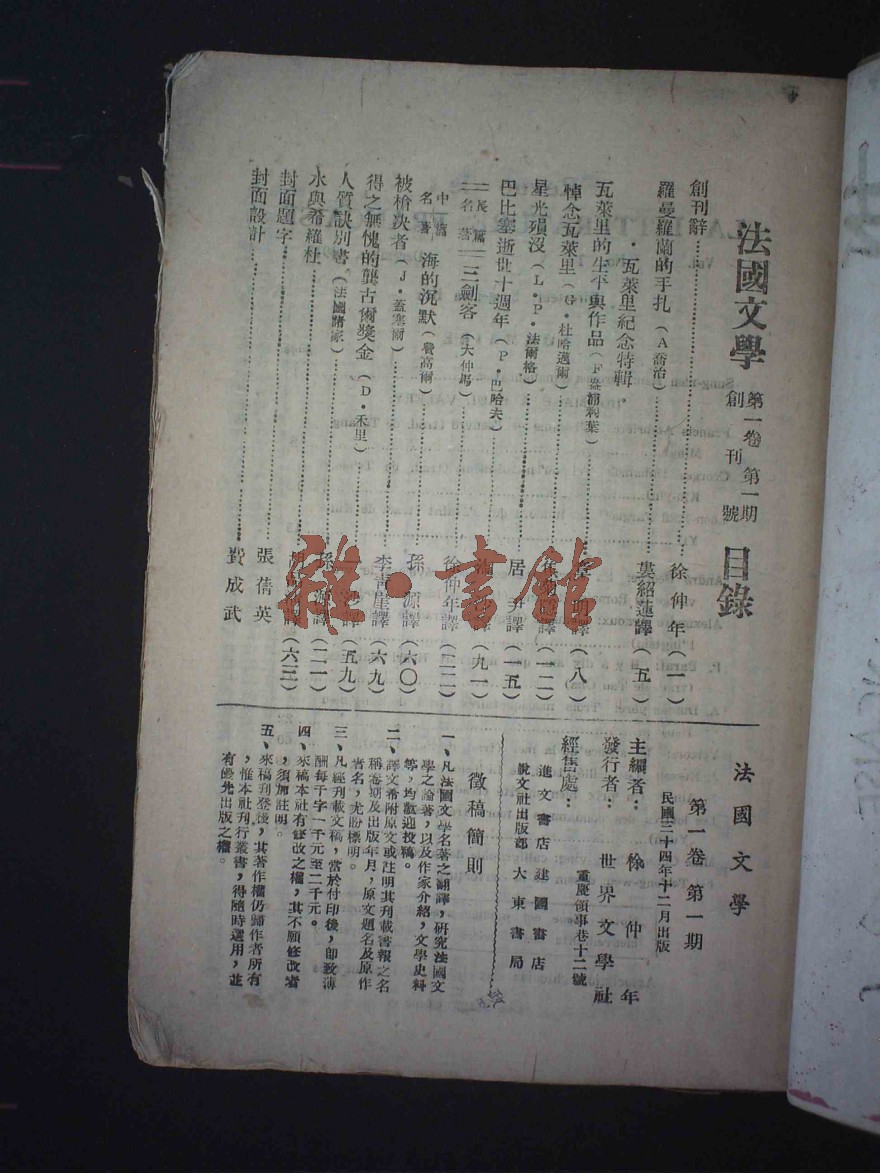 法國文學 第一卷 第一期 創刊號 目錄
創刊辭 徐仲年(一)
羅曼羅蘭的手扎(A喬治) 婁紹蓮譯(五)
·瓦萊里紀念特輯·
瓦萊里的生平與作品 譯(八)
悼念瓦萊里(G·杜哈邁爾) 譯(一二)
星光殞沒(L·P·法爾格) 居尹譯(一五)
巴比塞逝世十週年(P·巴哈夫) (九一)
長篇名著 三劍客(大仲馬) 徐仲年譯
中篇名著 海的沉默(費高爾) 孫源譯(六〇)
被槍決者(J·蓋塞爾) 李青崖譯(六九)
得之無愧的龔古爾獎金(D·禾里) (五九)
人質訣別書(法國諸家) 孫源譯(二一)
水與希羅杜 譯(六三)
封面題字 張倩英
封面設計 費成武
法國文學
第一卷第一期
民國三十四年十二月出版
主編者:徐仲年
發行者:世界文學社
重慶領事巷十二號
經售處:
進文書店 建國書店
說文社出版部 大東書局
徵稿簡則
一、凡法國文學名著之翻譯,研究法國文
學之論著,以及作家介紹,文學史料
等,均歡迎投稿。
二、譯文希附原文或註明其刊載書報之名
稱卷期及出版年月,原文題名及原作
者名,尤盼標明。
三、凡經刊載文稿,當於付印後,即致薄
酬每千字一千元至二千元。
四、來稿本社有修改之權,其不願修改者
,須加註明。
五、來稿刊登後,其著作權仍歸作者所有
,惟本社刊行叢書,得隨時選用,並
有優先出版之權。
雅·書館